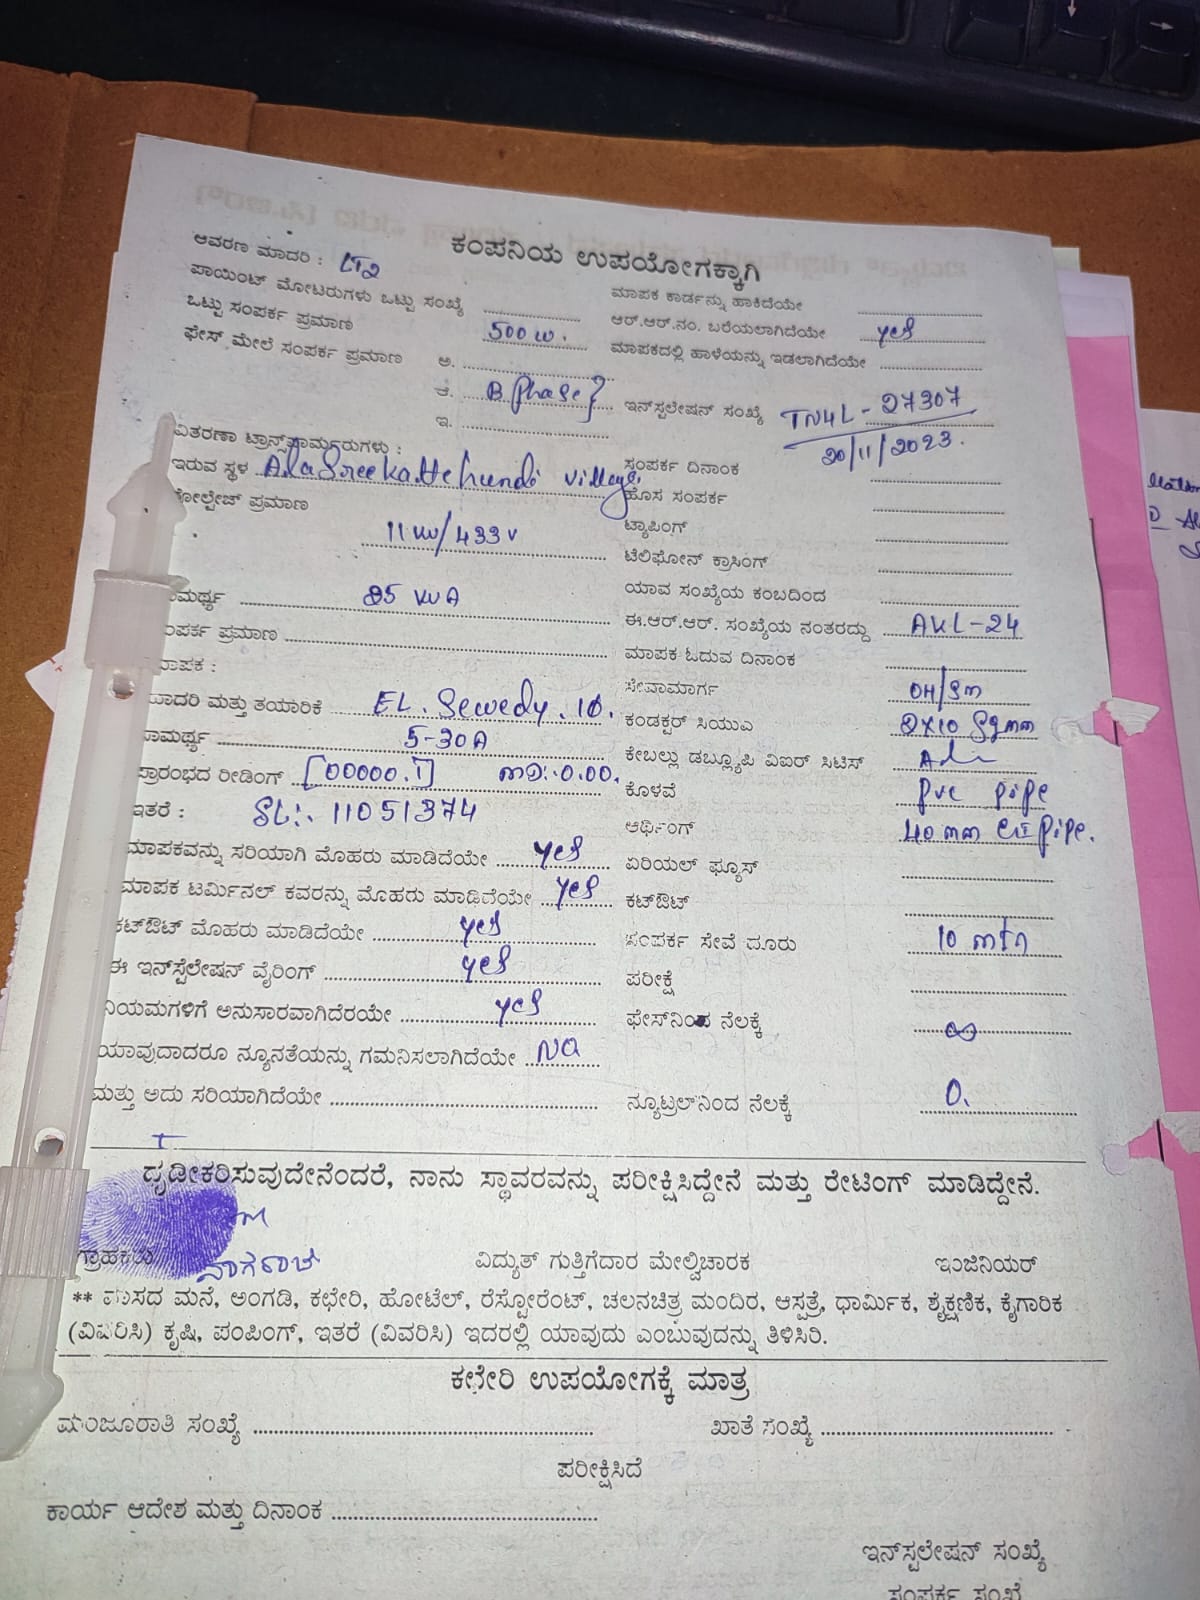 ಕಂಪನಿಯ ಉಪಯೋಗಕ್ಕಾಗಿ
ಆವರಣ ಮಾದರಿ : LT2
ಪಾಯಿಂಟ್ ಮೋಟರುಗಳು ಒಟ್ಟು ಸಂಖ್ಯೆ
ಒಟ್ಟು ಸಂಪರ್ಕ ಪ್ರಮಾಣ 500 W.
ಫೇಸ್ ಮೇಲೆ ಸಂಪರ್ಕ ಪ್ರಮಾಣ ಅ.
B Phase
ಇ.
ವಿತರಣಾ ಟ್ರಾನ್ಸ್‌ಫಾರ್ಮರುಗಳು :
ಇರುವ ಸ್ಥಳ AlaSreekattehundi village
ವೋಲ್ಟೇಜ್ ಪ್ರಮಾಣ
11 KV/433 V
ಸಾಮರ್ಥ್ಯ 25 KVA
ಸಂಪರ್ಕ ಪ್ರಮಾಣ
ಮಾಪಕ :
ಮಾದರಿ ಮತ್ತು ತಯಾರಿಕೆ EL. Sewedy. 1Ø.
ಸಾಮರ್ಥ್ಯ 5-30A
ಪ್ರಾರಂಭದ ರೀಡಿಂಗ್ [00000.1] MD:.0.00.
ಇತರೆ : SL:. 11051374
ಮಾಪಕವನ್ನು ಸರಿಯಾಗಿ ಮೊಹರು ಮಾಡಿದೆಯೇ yes
ಮಾಪಕ ಟರ್ಮಿನಲ್ ಕವರನ್ನು ಮೊಹರು ಮಾಡಿದೆಯೇ yes
ಕಟ್‌ಔಟ್ ಮೊಹರು ಮಾಡಿದೆಯೇ yes
ಈ ಇನ್‌ಸ್ಟೆಲೇಷನ್ ವೈರಿಂಗ್ yes
ನಿಯಮಗಳಿಗೆ ಅನುಸಾರವಾಗಿದೆರಯೇ yes
ಯಾವುದಾದರೂ ನ್ಯೂನತೆಯನ್ನು ಗಮನಿಸಲಾಗಿದೆಯೇ NO
ಮತ್ತು ಅದು ಸರಿಯಾಗಿದೆಯೇ
ಮಾಪಕ ಕಾರ್ಡನ್ನು ಹಾಕಿದೆಯೇ
ಆರ್.ಆರ್.ನಂ. ಬರೆಯಲಾಗಿದೆಯೇ yes
ಮಾಪಕದಲ್ಲಿ ಹಾಳೆಯನ್ನು ಇಡಲಾಗಿದೆಯೇ
ಇನ್‌ಸ್ಟಲೇಷನ್ ಸಂಖ್ಯೆ TN4L-27307
20/11/2023.
ಸಂಪರ್ಕ ದಿನಾಂಕ
ಹೊಸ ಸಂಪರ್ಕ
ಟ್ಯಾಪಿಂಗ್
ಟೆಲಿಫೋನ್ ಕ್ರಾಸಿಂಗ್
ಯಾವ ಸಂಖ್ಯೆಯ ಕಂಬದಿಂದ
ಈ.ಆರ್.ಆರ್. ಸಂಖ್ಯೆಯ ನಂತರದ್ದು AKL-24
ಮಾಪಕ ಓದುವ ದಿನಾಂಕ
ಸೇವಾಮಾರ್ಗ OH/SM
ಕಂಡಕ್ಟರ್ ಸಿಯುಎ 2X10 Sqmm
ಕೇಬಲ್ಲು ಡಬ್ಲ್ಯೂಪಿ ವಿಐರ್ ಸಿಟಿಸ್
ಕೊಳವೆ pvc pipe
ಆರ್ಥಿಂಗ್ 40 mm GI pipe.
ಏರಿಯಲ್ ಫ್ಯೂಸ್
ಕಟ್‌ಔಟ್
ಸಂಪರ್ಕ ಸೇವೆ ದೂರು 10 mtr
ಪರೀಕ್ಷೆ
ಫೇಸ್‌ನಿಂದ ನೆಲಕ್ಕೆ ∞
ನ್ಯೂಟ್ರಲ್‌ನಿಂದ ನೆಲಕ್ಕೆ 0.
ಧೃಡೀಕರಿಸುವುದೇನೆಂದರೆ, ನಾನು ಸ್ಥಾವರವನ್ನು ಪರೀಕ್ಷಿಸಿದ್ದೇನೆ ಮತ್ತು ರೇಟಿಂಗ್ ಮಾಡಿದ್ದೇನೆ.
ಗ್ರಾಹಕರು ನಾಗರಾಜ್ ವಿದ್ಯುತ್ ಗುತ್ತಿಗೆದಾರ ಮೇಲ್ವಿಚಾರಕ ಇಂಜಿನಿಯರ್
** ವಾಸದ ಮನೆ, ಅಂಗಡಿ, ಕಛೇರಿ, ಹೋಟೆಲ್, ರೆಸ್ಟೋರೆಂಟ್, ಚಲನಚಿತ್ರ ಮಂದಿರ, ಆಸ್ಪತ್ರೆ, ಧಾರ್ಮಿಕ, ಶೈಕ್ಷಣಿಕ, ಕೈಗಾರಿಕ
(ವಿವರಿಸಿ) ಕೃಷಿ, ಪಂಪಿಂಗ್, ಇತರೆ (ವಿವರಿಸಿ) ಇದರಲ್ಲಿ ಯಾವುದು ಎಂಬುವುದನ್ನು ತಿಳಿಸಿರಿ.
ಕಛೇರಿ ಉಪಯೋಗಕ್ಕೆ ಮಾತ್ರ
ಮಂಜೂರಾತಿ ಸಂಖ್ಯೆ ಖಾತೆ ಸಂಖ್ಯೆ
ಪರೀಕ್ಷಿಸಿದೆ
ಕಾರ್ಯ ಆದೇಶ ಮತ್ತು ದಿನಾಂಕ
ಇನ್‌ಸ್ಟಲೇಷನ್ ಸಂಖ್ಯೆ
ಸಂಪರ್ಕ ಸಂಖ್ಯೆ